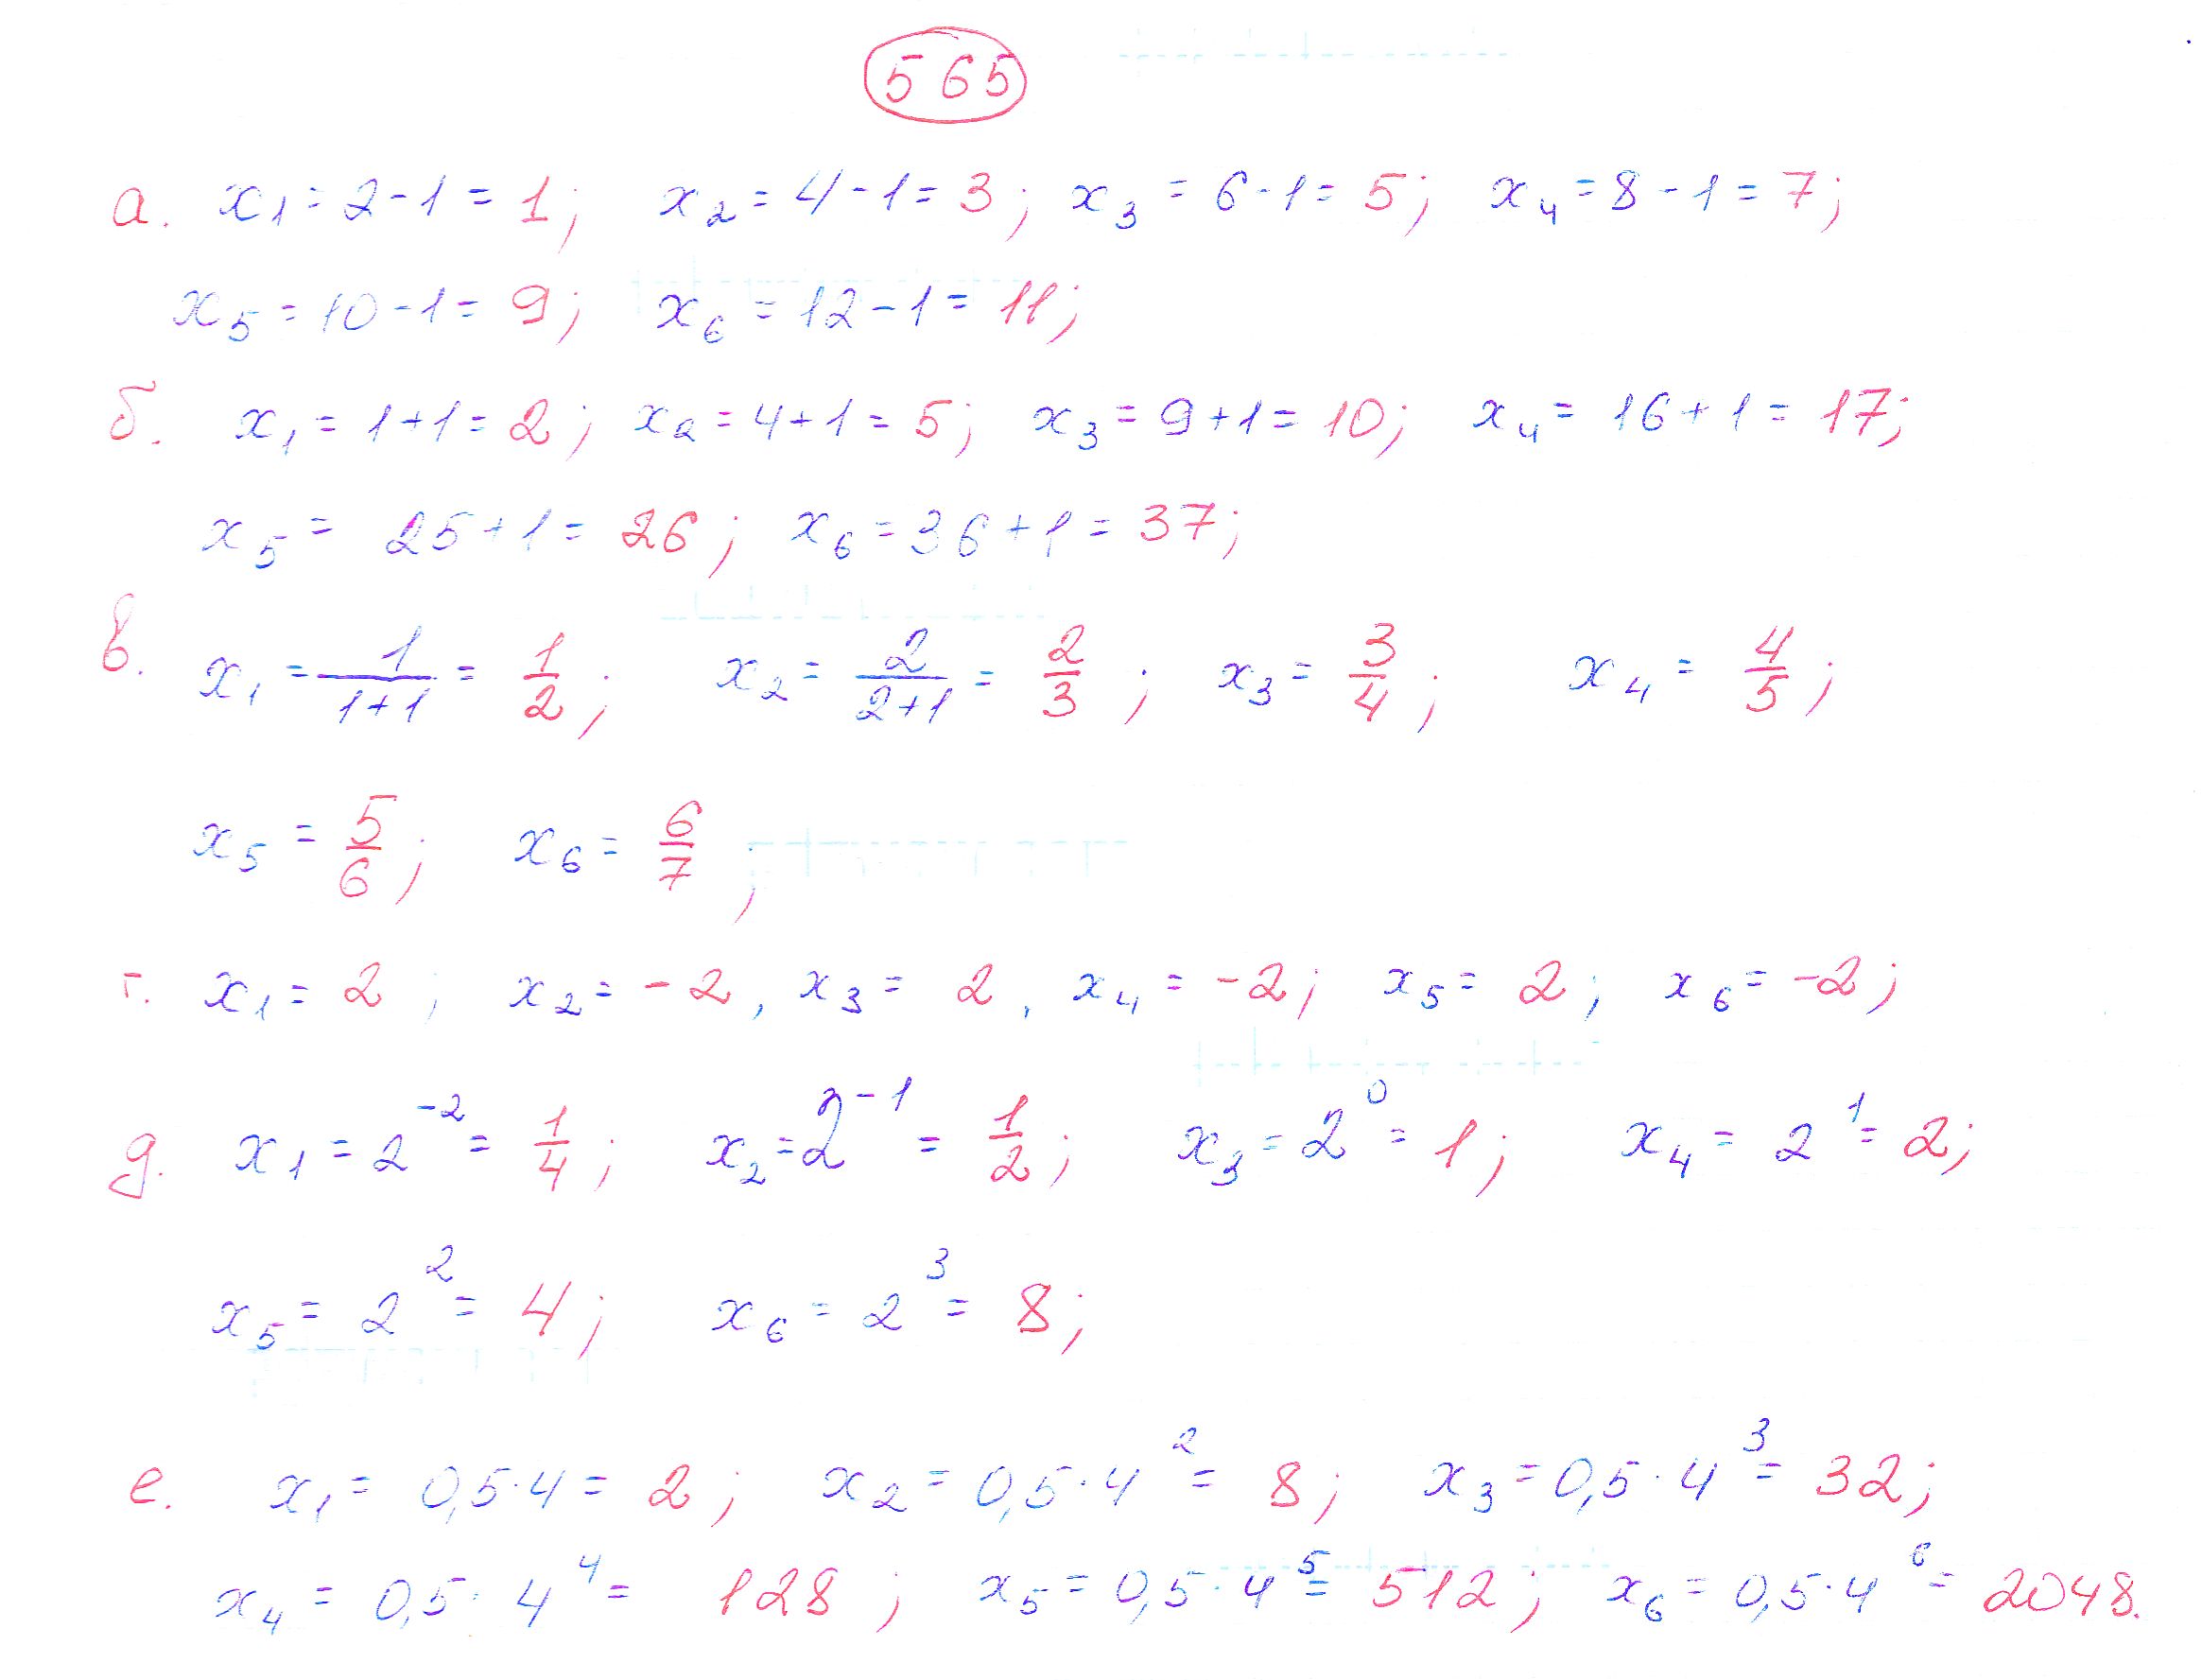 565
а. x₁ = 2 - 1 = 1; x₂ = 4 - 1 = 3; x₃ = 6 - 1 = 5; x₄ = 8 - 1 = 7;
x₅ = 10 - 1 = 9; x₆ = 12 - 1 = 11;
б. x₁ = 1 + 1 = 2; x₂ = 4 + 1 = 5; x₃ = 9 + 1 = 10; x₄ = 16 + 1 = 17;
x₅ = 25 + 1 = 26; x₆ = 36 + 1 = 37;
в. x₁ = 1/(1+1) = 1/2; x₂ = 2/(2+1) = 2/3; x₃ = 3/4; x₄ = 4/5;
x₅ = 5/6; x₆ = 6/7;
г. x₁ = 2; x₂ = -2, x₃ = 2, x₄ = -2; x₅ = 2; x₆ = -2;
д. x₁ = 2⁻² = 1/4; x₂ = 2⁻¹ = 1/2; x₃ = 2⁰ = 1; x₄ = 2¹ = 2;
x₅ = 2² = 4; x₆ = 2³ = 8;
е. x₁ = 0,5·4 = 2; x₂ = 0,5·4² = 8; x₃ = 0,5·4³ = 32;
x₄ = 0,5·4⁴ = 128; x₅ = 0,5·4⁵ = 512; x₆ = 0,5·4⁶ = 2048.